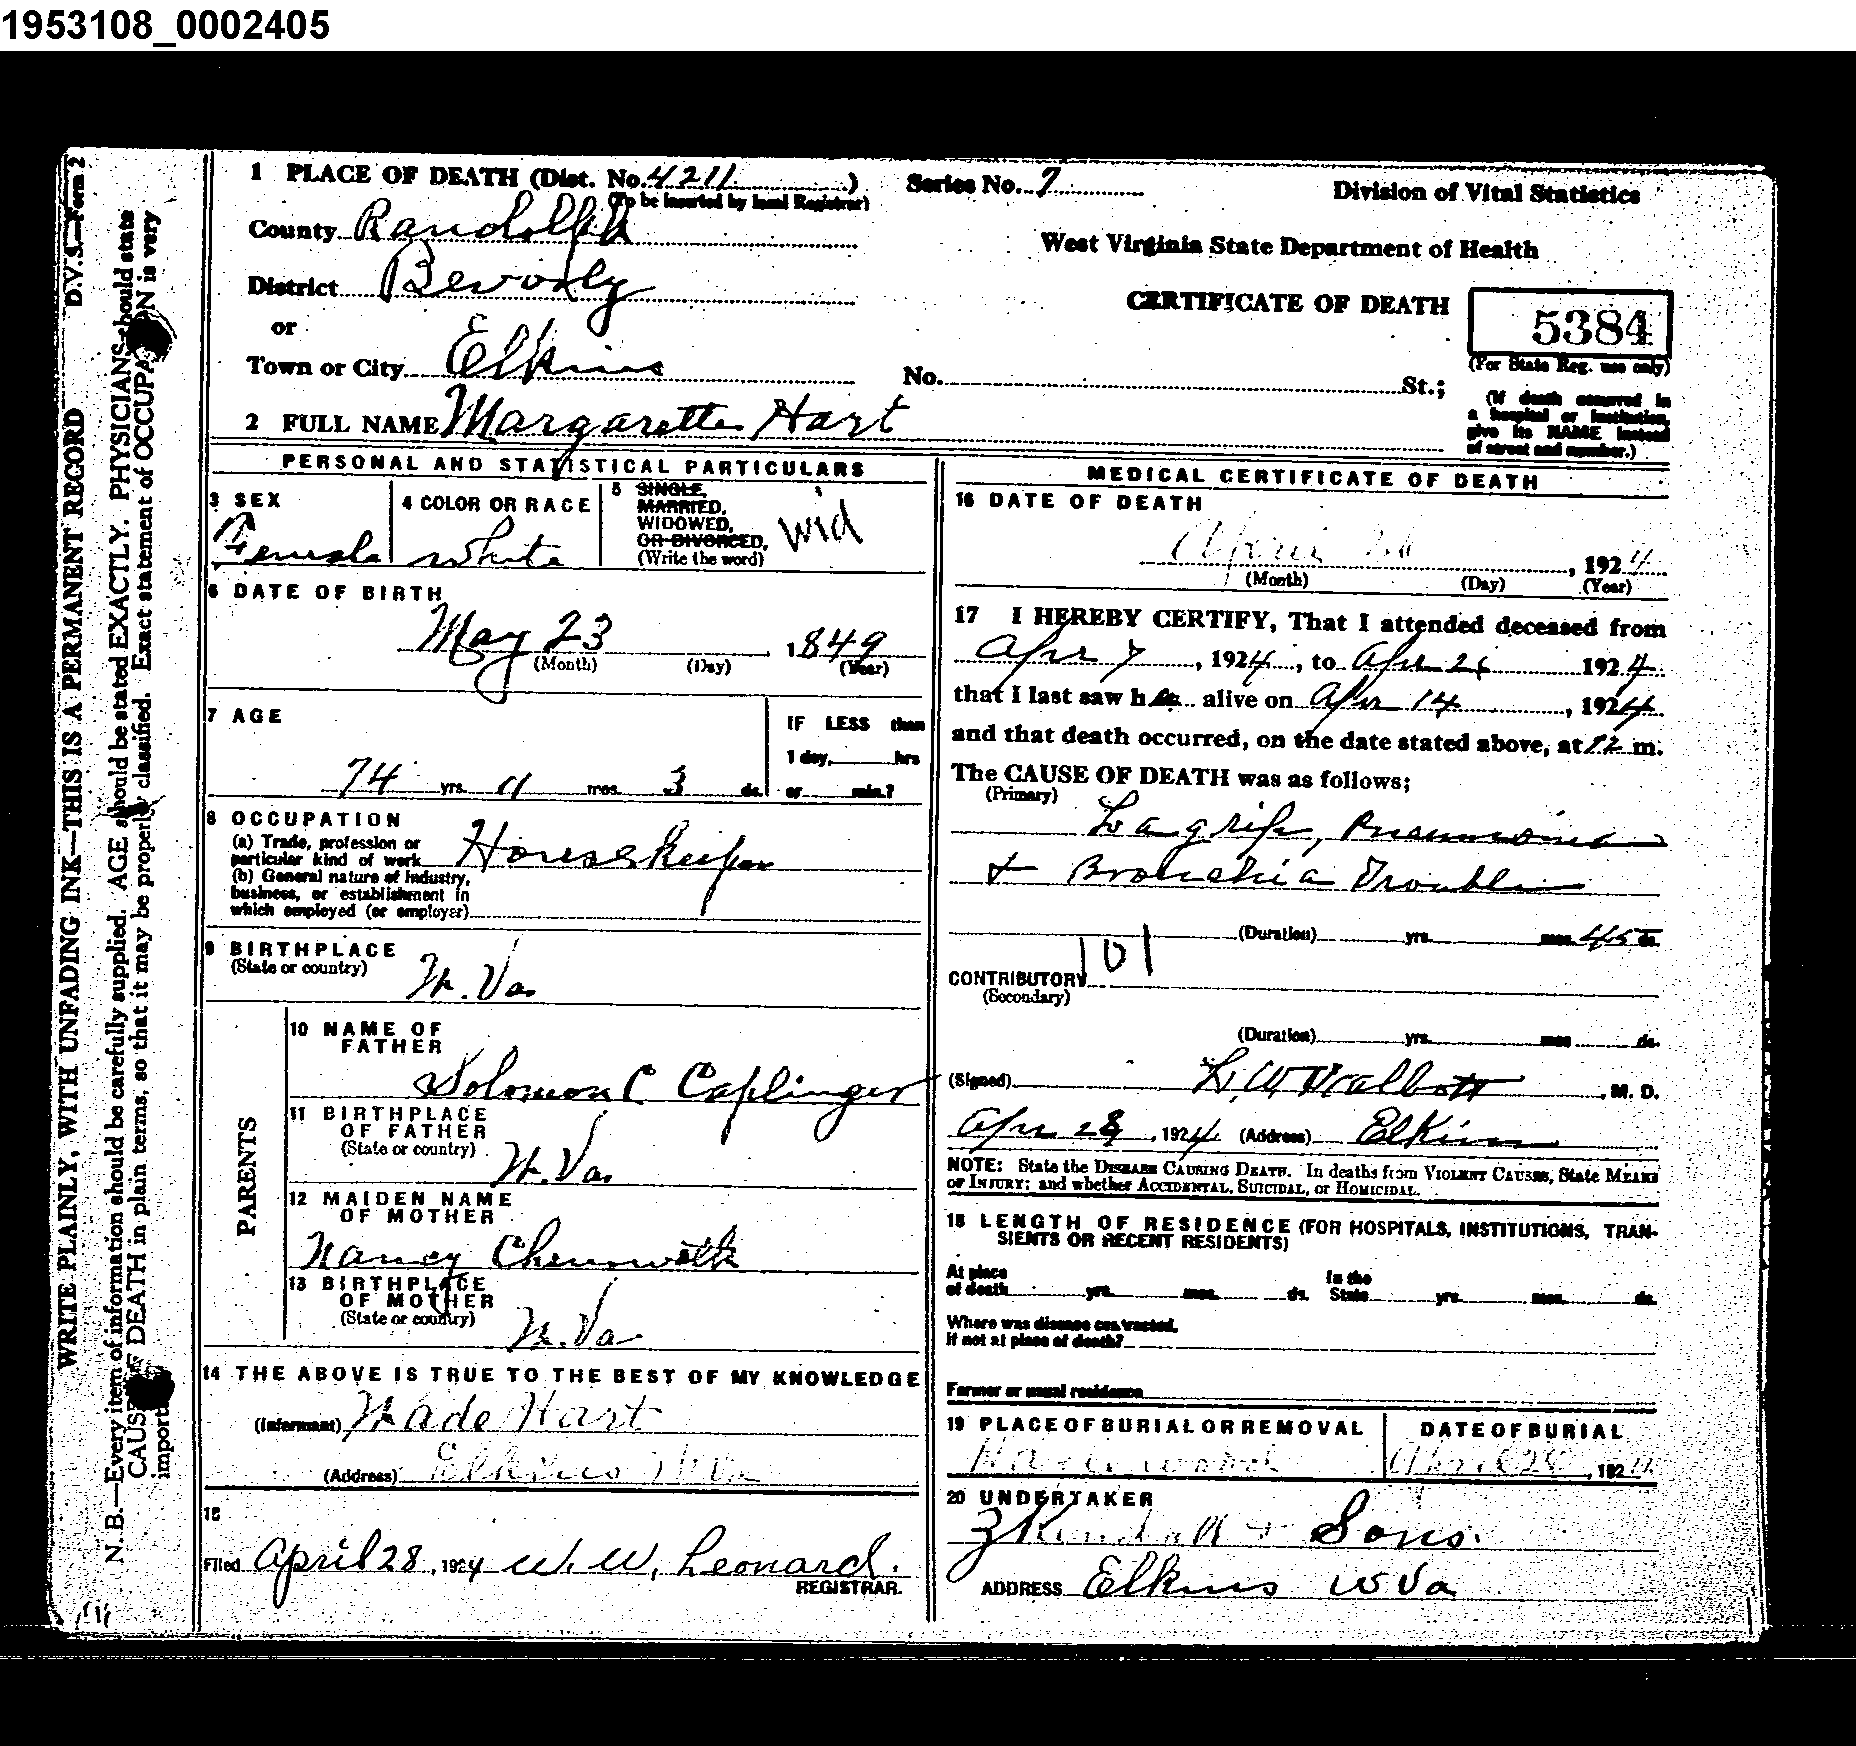 1953108_0002405
D.V.S.—Form 2
WRITE PLAINLY, WITH UNFADING INK—THIS IS A PERMANENT RECORD
N. B.—Every item of information should be carefully supplied. AGE should be stated EXACTLY. PHYSICIANS should state
CAUSE DEATH in plain terms, so that it may be properly classified. Exact statement of OCCUPA N is very
import
1 PLACE OF DEATH (Dist. No. 4211 ) Series No. 7
(To be inserted by local Registrar)
Division of Vital Statistics
County Randolph
West Virginia State Department of Health
District Beverly
CERTIFICATE OF DEATH 5384
(For State Reg. use only)
or
Town or City Elkins No. St.;
(If death occurred in
a hospital or institution,
give its NAME instead
of street and number.)
2 FULL NAME Margarette Hart
PERSONAL AND STATISTICAL PARTICULARS
3 SEX
Female
4 COLOR OR RACE
White
5 SINGLE,
MARRIED,
WIDOWED,
OR DIVORCED,
(Write the word)
Wid
6 DATE OF BIRTH
May 23, 1849
(Month) (Day) (Year)
7 AGE
74 yrs. 11 mos. 3 ds.
IF LESS than
1 day, hrs
or min.?
8 OCCUPATION
(a) Trade, profession or
particular kind of work Housekeeper
(b) General nature of Industry,
business, or establishment in
which employed (or employer)
9 BIRTHPLACE
(State or country) W. Va
PARENTS
10 NAME OF
FATHER
Solomon C Caplinger
11 BIRTHPLACE
OF FATHER
(State or country) W. Va.
12 MAIDEN NAME
OF MOTHER
Nancy Chenoweth
13 BIRTHPLACE
OF MOTHER
(State or country) W. Va
14 THE ABOVE IS TRUE TO THE BEST OF MY KNOWLEDGE
(Informant) Wade Hart
(Address) Elkins W Va
15
Filed April 28, 1924 W. W. Leonard.
REGISTRAR.
MEDICAL CERTIFICATE OF DEATH
16 DATE OF DEATH
April 26, 1924
(Month) (Day) (Year)
17 I HEREBY CERTIFY, That I attended deceased from
Apr 7, 1924, to Apr 26 1924
that I last saw her alive on Apr 14, 1924
and that death occurred, on the date stated above, at 12 m.
The CAUSE OF DEATH was as follows;
(Primary)
Lagrip, Pneumonia
+ Bronchia Trouble
(Duration) yrs. mos. 45 ds.
CONTRIBUTORY 101
(Secondary)
(Duration) yrs. mos. ds.
(Signed) L. W. Talbott, M. D.
Apr 28, 1924 (Address) Elkins
NOTE: State the DISEASE CAUSING DEATH. In deaths from VIOLENT CAUSES, State MEANS
OF INJURY; and whether ACCIDENTAL, SUICIDAL, or HOMICIDAL.
18 LENGTH OF RESIDENCE (FOR HOSPITALS, INSTITUTIONS, TRAN-
SIENTS OR RECENT RESIDENTS)
At place
of death yrs. mos. ds.
In the
State yrs. mos. ds.
Where was disease contracted,
if not at place of death?
Former or usual residence
19 PLACE OF BURIAL OR REMOVAL
DATE OF BURIAL
April 28, 1924
20 UNDERTAKER
& Sons.
ADDRESS Elkins W Va